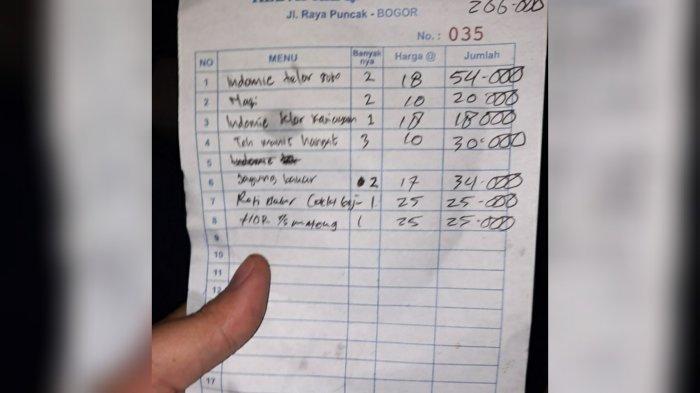 206-000
Jl. Raya Puncak - BOGOR
No. : 035
NO MENU Banyak nya Harga @ Jumlah
1 Indomie telor soto 2 18 54-000
2 Nasi 2 10 20 000
3 Indomie telor 1 18 18000
4 Teh manis hangat 3 10 30-000
5 Indomie
6 Jagung bakar 2 17 34-000
7 Roti Bakar 1 25 25-000
8 1/2 matang 1 25 25-000
9
10
11
17